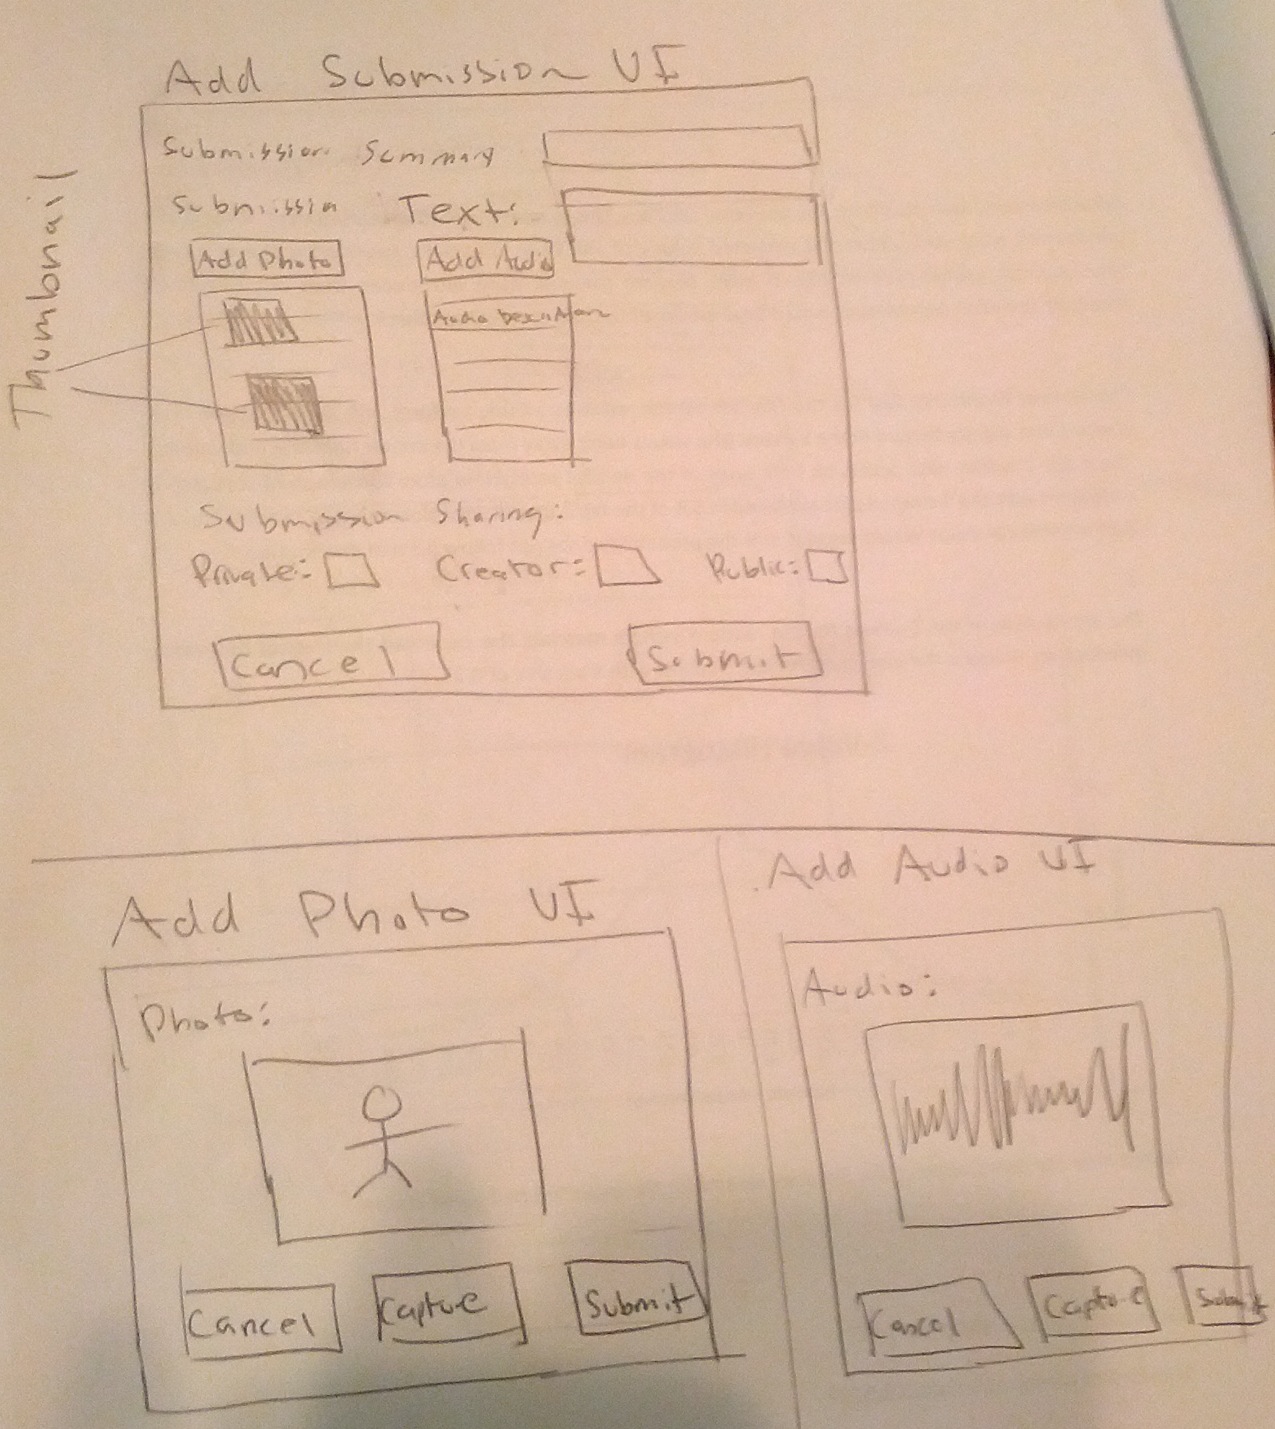 Add Submission UI
Submission Summary
Submission Text:
Add Photo Add Audio
Thumbnail
Audio Description
Submission Sharing:
Private: Creator: Public:
Cancel Submit
Add Photo UI
Photo:
Cancel Capture Submit
Add Audio UI
Audio:
Cancel Capture Submit